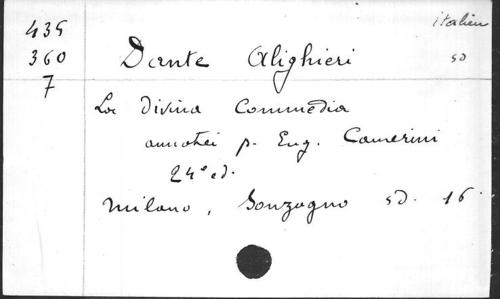 435
360
7
italien
sd
Dante Alighieri
La Divina Commedia
annotei p. Eug. Camerini
24e ed.
Milano, Sonzogno sd. 16